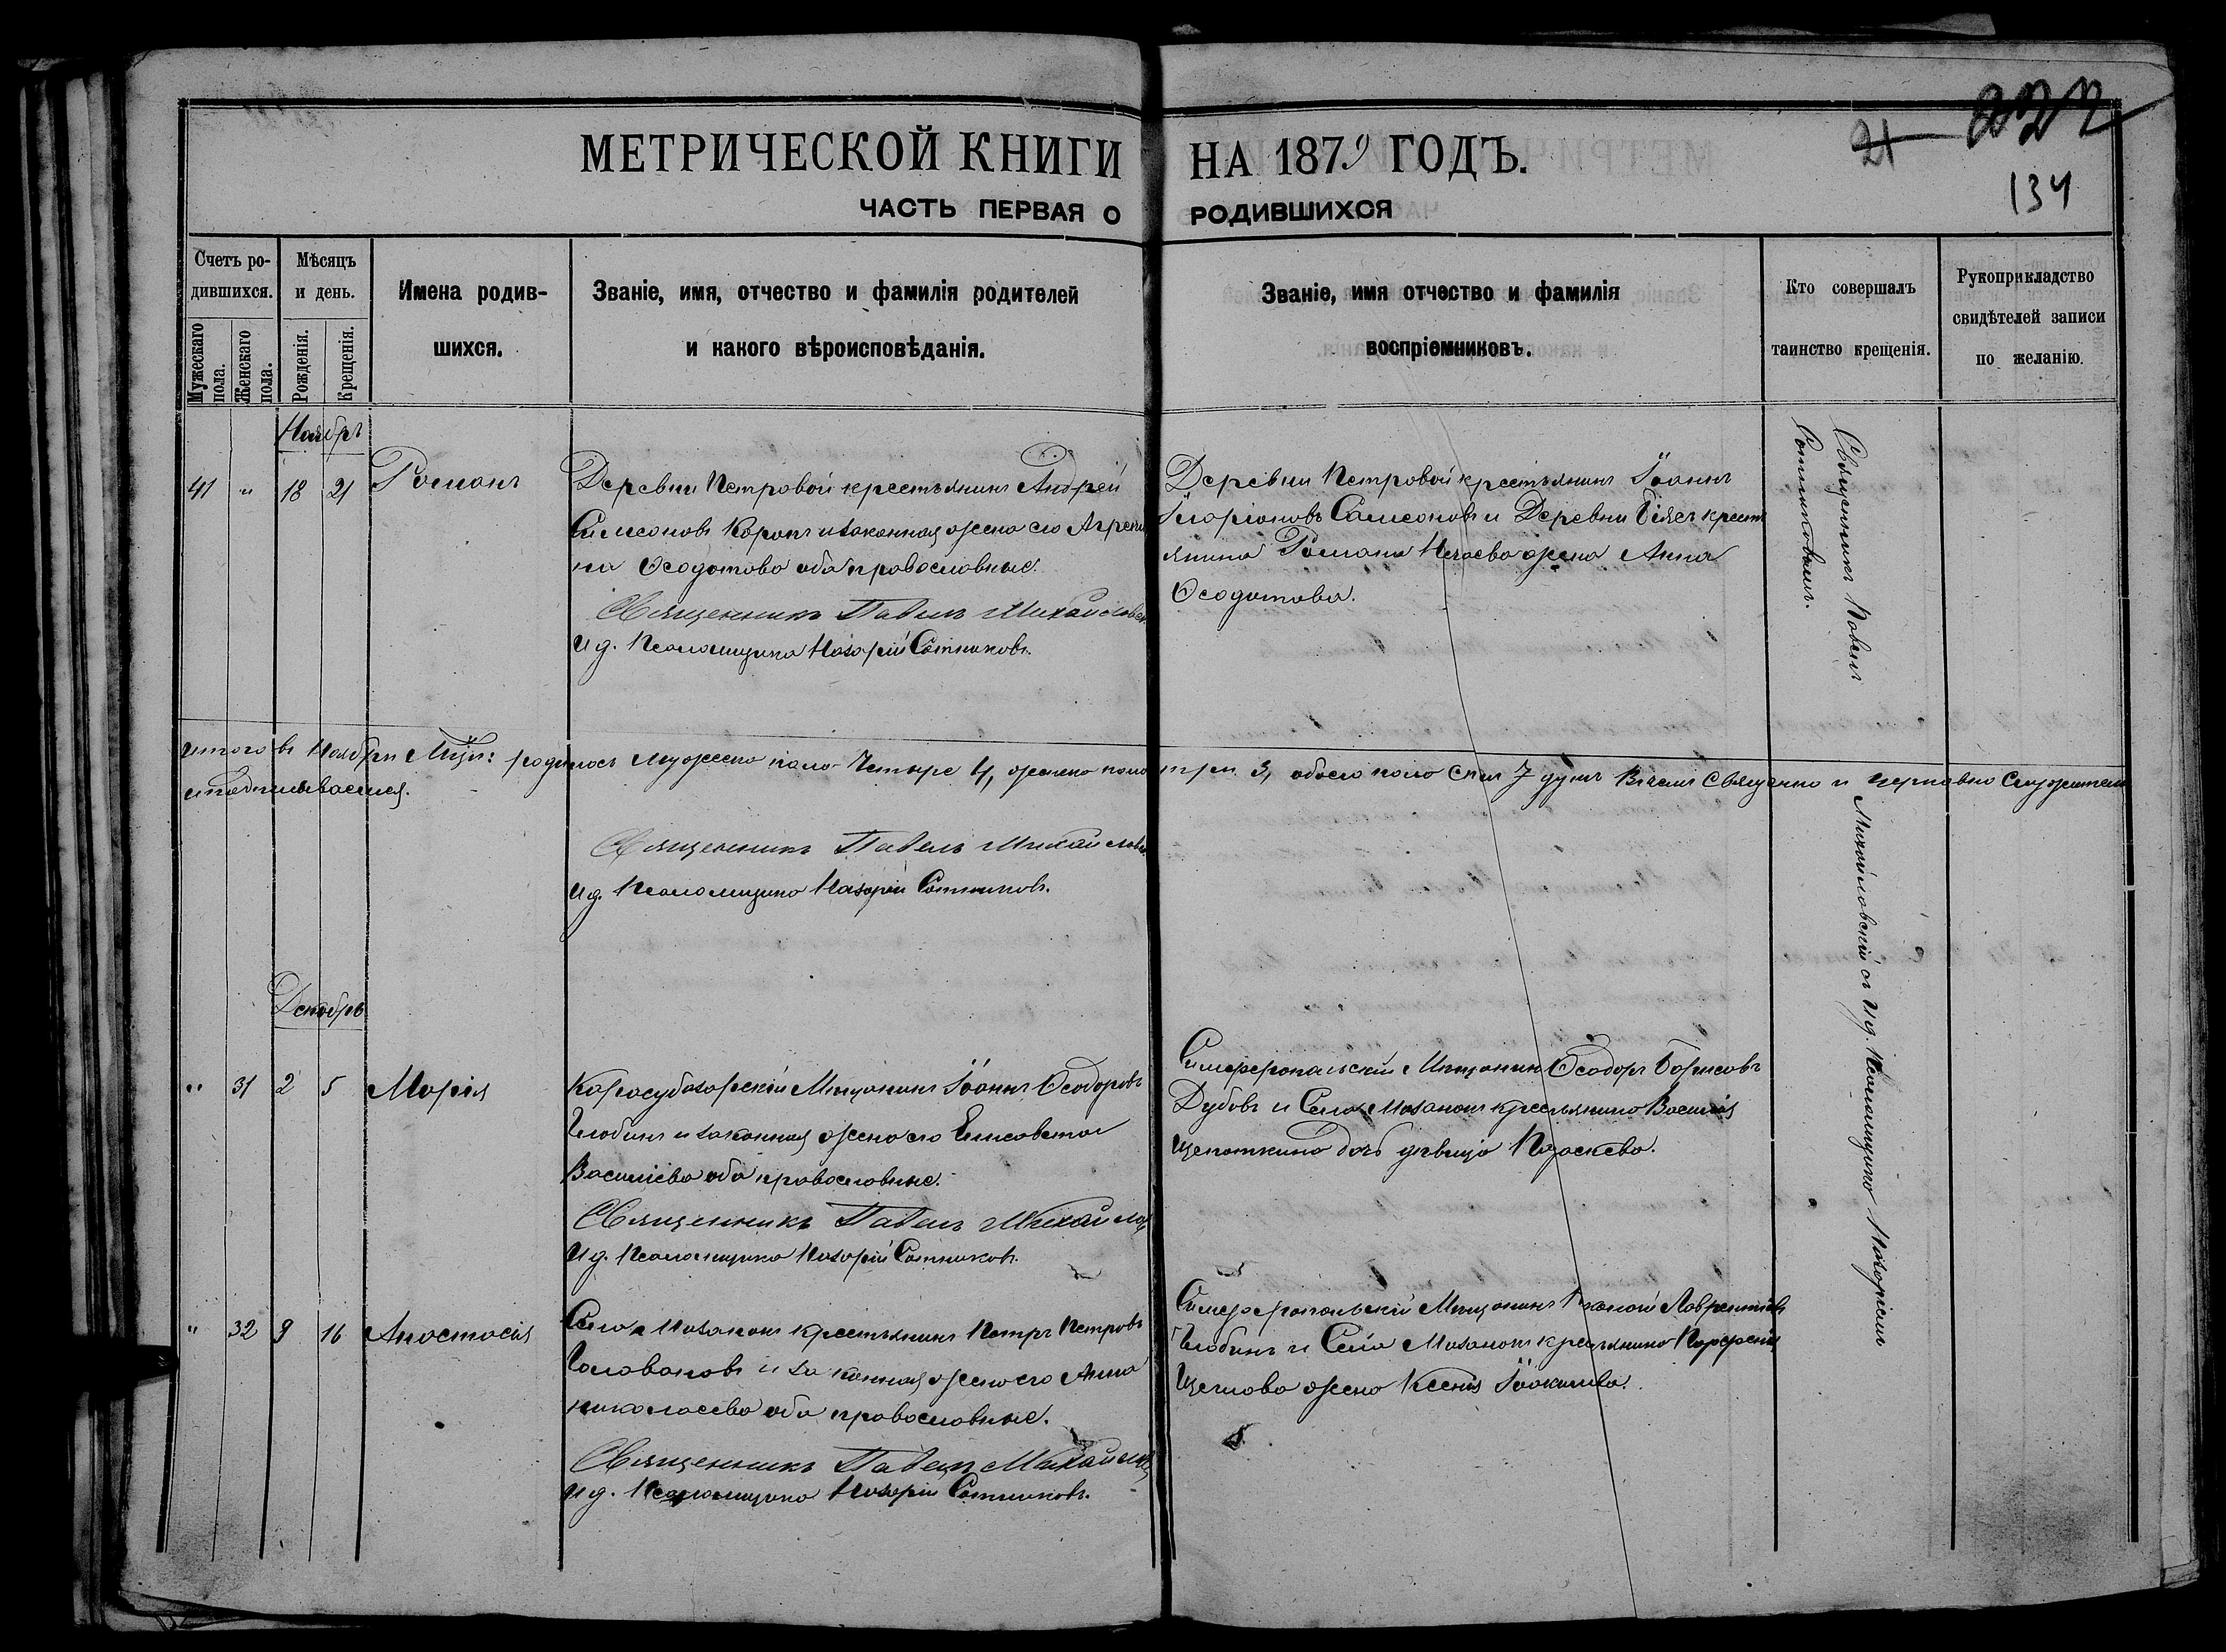 МЕТРИЧЕСКОЙ КНИГИ НА 1879 ГОДЪ.
ЧАСТЬ ПЕРВАЯ О РОДИВШИХСЯ
21
227
134
Счетъ ро-
дившихся.
Мужескаго
пола.
Женскаго
пола.
Мѣсяцъ
и день.
Рожденія.
Крещенія.
Имена родив-
шихся.
Званіе, имя, отчество и фамилія родителей
и какого вѣроисповѣданія.
Званіе, имя отчество и фамилія
воспріемниковъ.
Кто совершалъ
таинство крещенія.
Рукоприкладство
свидѣтелей записи
по желанію.
Ноябрь
41 " 18 21 Романъ
Деревни Петровой крестьянинъ Андрей
Симеоновъ и законная жена его Агрепи
на Ѳеодотова оба православные.
Священникъ Павелъ Михайловск
И д. Псаломщика Назарій Сотниковъ.
Деревни Петровой крестьянинъ Іоаннъ
Иларіоновъ Самсоновъ и Деревни крест
янина Романа Нечаева жена Анна
Ѳеодотова.
Священникъ Павелъ
Сотниковымъ.
Итого въ Ноябрѣ Мцѣ: родилось мужеска пола Четыре 4, женска пола три 3, обоего пола семь 7 душъ въ чемъ Священно и церковно служители
и подписываемся.
Священникъ Павелъ Михайловск
И д. Псаломщика Назарій Сотниковъ.
Михайловскій съ И д. Псаломщика Назаріемъ
Декабрь
" 31 2 5 Марія
Карасубазарскій Мѣщанинъ Іоаннъ Ѳеодоровъ
Глобинъ и законная жена его Елисавета
Василіева оба православные.
Священникъ Павелъ Михайлов
И д. Псаломщика Назарій Сотниковъ.
Симферопольскій Мѣщанинъ Ѳеодоръ Борисовъ
Дубовъ и Села Мазанки крестьянина Василія
Щепоткина дочь дѣвица Параскева.
" 32 9 16 Анастасія
Села Мазанки крестьянинъ Петръ Петровъ
Головановъ и законная жена его Анна
Николаева оба православные.
Священникъ Павелъ Михайлов
И д. Псаломщика Назарій Сотниковъ.
Симферопольскій Мѣщанинъ Лаврентіевъ
Глобинъ и Села Мазанки крестьянина Парфенія
Щеглова жена Ксенія Іоакимова.